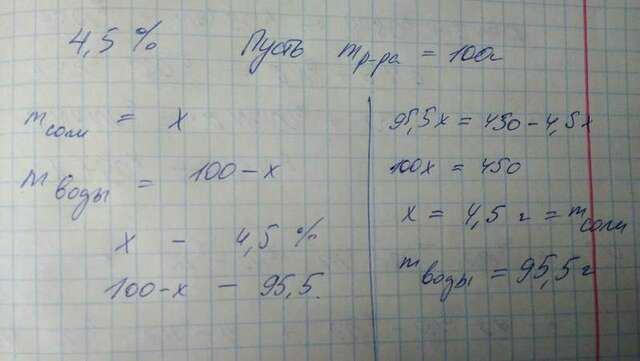 4,5 % Пусть m р-ра = 100г
m соли = x
m воды = 100 - x
x - 4,5 %
100-x - 95,5.
95,5x = 450 - 4,5x
100x = 450
x = 4,5 г = m соли
m воды = 95,5 г